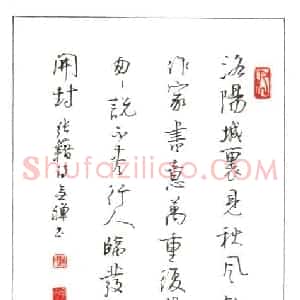 洛陽城裏見秋風
作家書意萬重復
匆匆說不盡行人臨發
開封 張籍詩
Shufaziliao.com